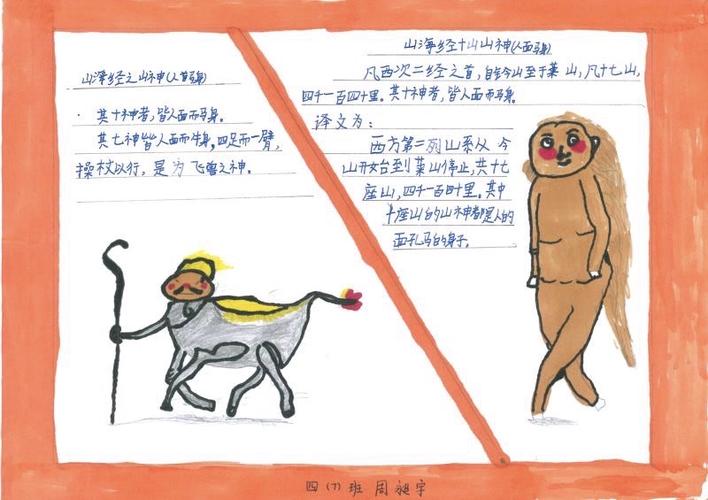 山海经之山神(人首马身)
· 其十神者，皆人面而马身。
其七神皆人面而牛身，四足而一臂，
操杖以行，是为飞兽之神。
山海经十山山神(人面马身)
凡西次二经之首，自钤山至于莱山，凡十七山，
四千一百四十里。其十神者，皆人面而马身。
译文为：
西方第二列山系从今
山开始台到莱山停止，共十七
座山，四千一百四十里。其中
十座山的山神都是人的
面孔马的身子。
四(7)班 周昶宇